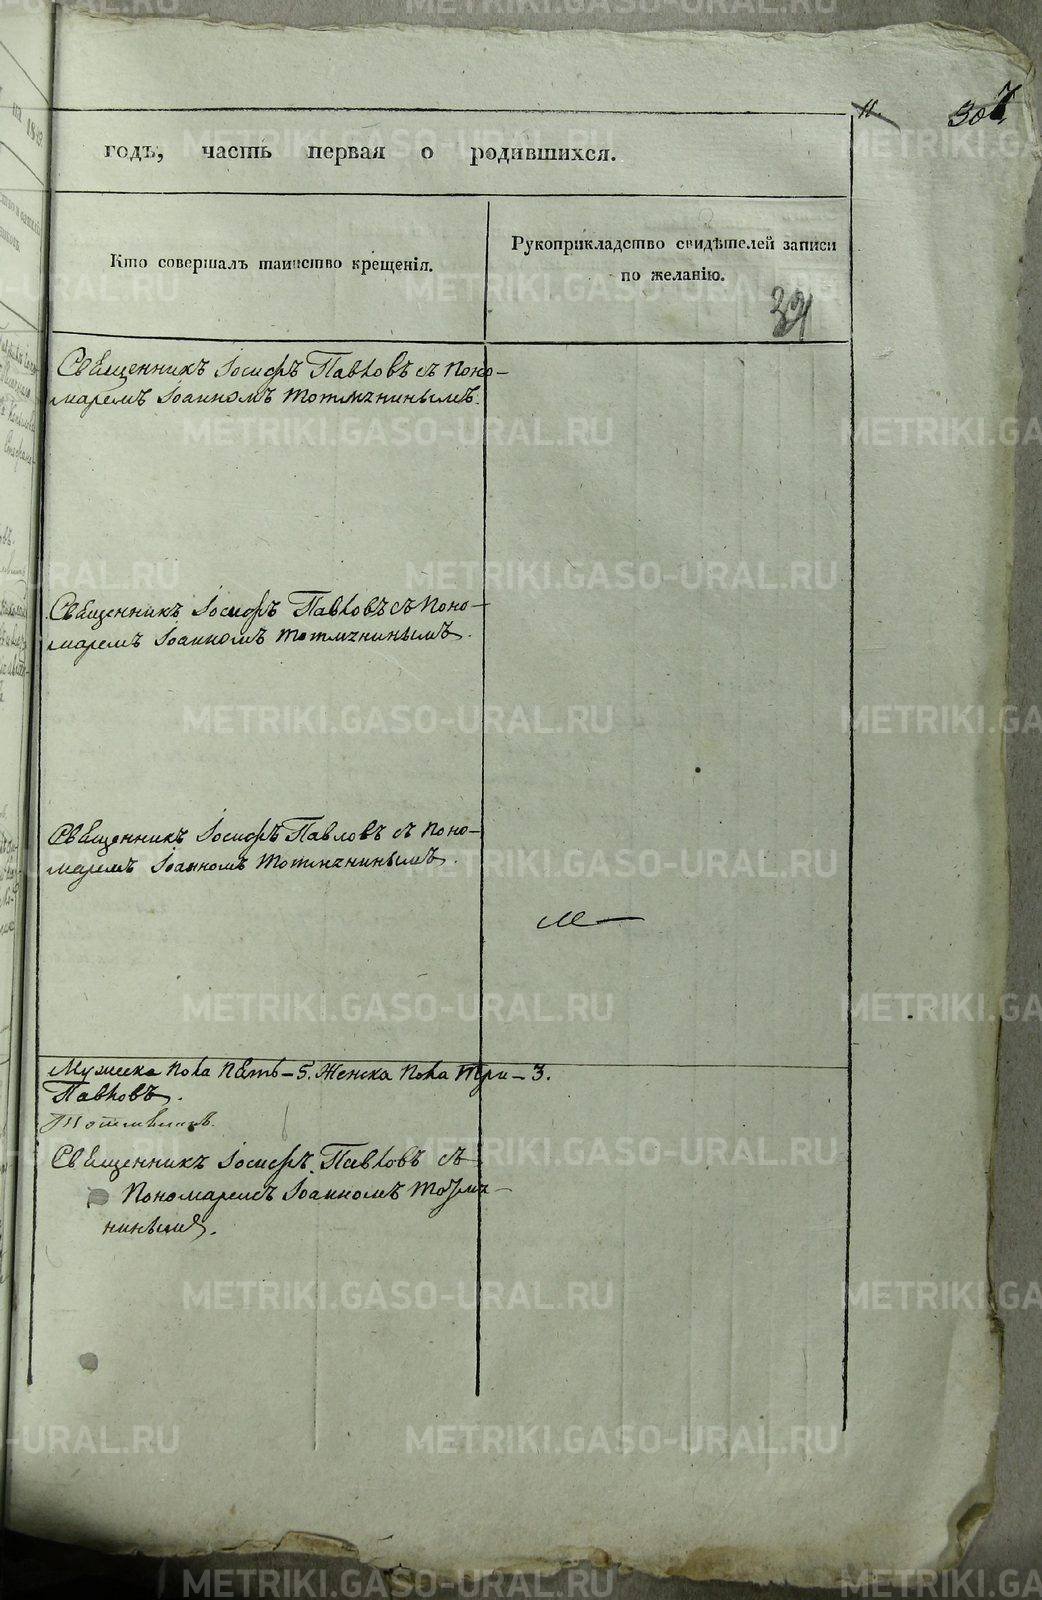 11.
307
годъ, часть первая о родившихся.
Кто совершалъ таинство крещенія.
Рукоприкладство свидѣтелей записи
по желанію.
Священникъ Іосифъ Павловъ съ Поно-
маремъ Іоанномъ Тотмянинымъ.
Священникъ Іосифъ Павловъ съ Поно-
маремъ Іоанномъ Тотмянинымъ.
Священникъ Іосифъ Павловъ съ Поно-
маремъ Іоанномъ Тотмянинымъ.
Мужеска Пола Пять – 5. Женска Пола Три – 3.
Павловъ.
Священникъ Іосифъ Павловъ съ
Пономаремъ Іоанномъ Тотмя-
нинымъ.
METRIKI.GASO-URAL.RU